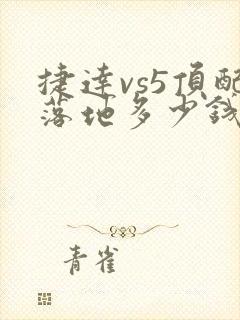 捷達vs5頂配
落地多少錢
青雀